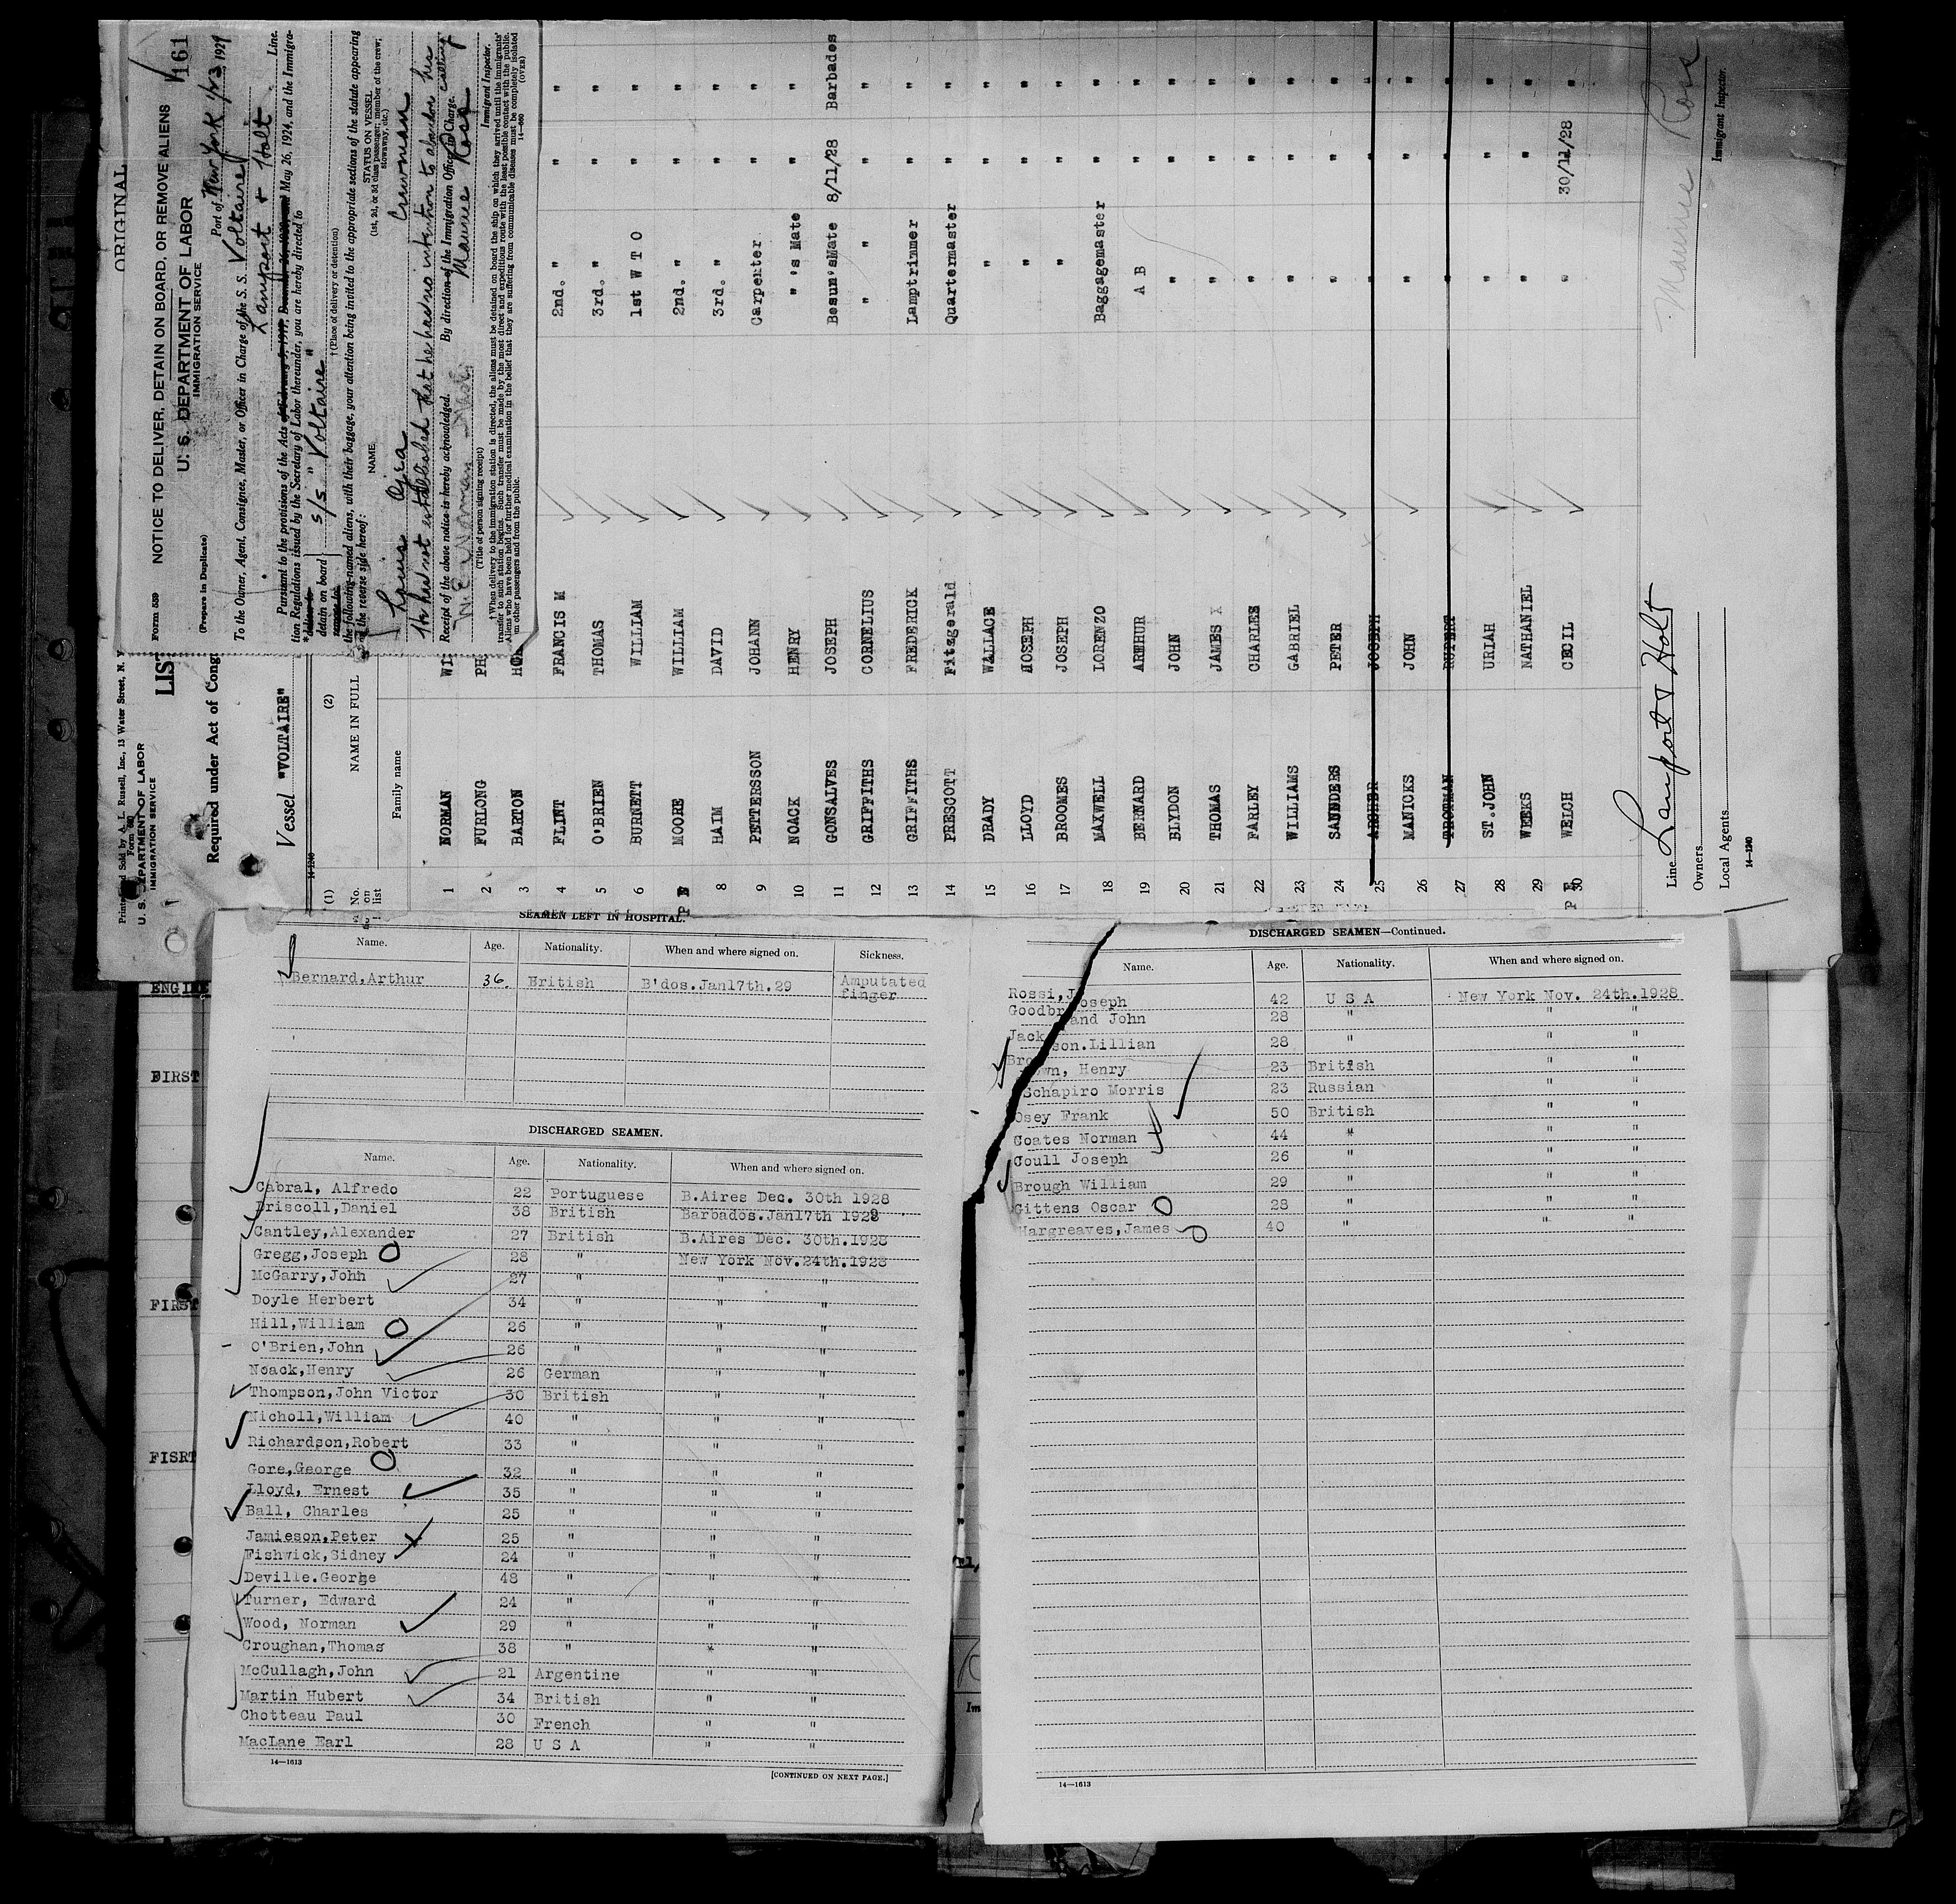 ORIGINAL
161
Form 539 NOTICE TO DELIVER, DETAIN ON BOARD, OR REMOVE ALIENS
U. S. DEPARTMENT OF LABOR
IMMIGRATION SERVICE
(Prepare in Duplicate)
Port of New York 1929
To the Owner, Agent, Consignee, Master, or Officer in Charge of the S. S. Voltaire
Lamport + Holt Line.
Pursuant to the provisions of the Acts of February 5, 1917, December 26, 1920, and May 26, 1924, and the Immigra-
tion Regulations issued by the Secretary of Labor thereunder, you are hereby directed to
detain on board s/s " Voltaire "
†(Place of delivery or detention)
the following-named aliens, with their baggage, your attention being invited to the appropriate sections of the statute appearing
on the reverse side hereof:
NAME
STATUS ON VESSEL
(1st, 2d, or 3d class passenger; member of the crew;
stowaway, etc.)
Louis Crewman
He has not established that he has no intention to abandon his calling
Receipt of the above notice is hereby acknowledged. By direction of the Immigration Officer in Charge.
Maurice Rose
Immigrant Inspector.
(Title of person signing receipt)
†When delivery to the immigration station is directed, the aliens must be detained on board the ship on which they arrived until the immigrants'
transfer to such station begins. Such transfer must be made by the most direct and expeditious route with the least possible contact with the public.
Aliens who have been held for further medical examination in the belief that they are suffering from communicable diseases must be completely isolated
from other passengers and from the public.
(OVER)
13 Water Street, N. Y.
U. S. DEPARTMENT OF LABOR
IMMIGRATION SERVICE
LIST
Required under Act of Cong
Vessel "VOLTAIRE"
(1) (2)
No. on list NAME IN FULL
Family name
1 NORMAN WI
2 FURLONG PH
3 BARTON
4 FLINT FRANCIS M 2nd. " " "
5 O'BRIEN THOMAS 3rd. " " "
6 BURNETT WILLIAM 1st W T O " "
MOORE WILLIAM 2nd. " " "
8 HAIM DAVID 3rd. " " "
9 PETTERSSON JOHANN Carpenter " "
10 NOACK HENRY " 's Mate " "
11 GONSALVES JOSEPH Bosun'sMate 8/11/28 Barbados
12 GRIFFITHS CORNELIUS " " " "
13 GRIFFITHS FREDERICK Lamptrimmer " "
14 PRESCOTT Fitzgerald Quartermaster " "
15 DRADY WALLACE " " "
16 LLOYD MOSEPH " " "
17 BROOMES JOSEPH " " "
18 MAXWELL LORENZO Baggagemaster " "
19 BERNARD ARTHUR A B " "
20 BLYDON JOHN " " "
21 THOMAS JAMES X " " "
22 FARLEY CHARLES " " "
23 WILLIAMS GABRIEL " " "
24 SAUNDERS PETER " " "
25 ARCHER JOSEPH " " "
26 MANICKS JOHN " " "
27 TROTMAN RUPERT " " "
28 ST.JOHN URIAH " " "
29 WEEKS NATHANIEL " " "
30 WELCH CECIL " 30/11/28 "
Line Lamport & Holt
Owners
Local Agents
14—1240
Maurice Rose
Immigrant Inspector.
ENGINE
FIRST
FIRST
FISRT
SEAMEN LEFT IN HOSPITAL.
Name. Age. Nationality. When and where signed on. Sickness.
Bernard,Arthur 36. British B'dos.Jan17th.29 Amputated
finger
DISCHARGED SEAMEN.
Name. Age. Nationality. When and where signed on.
Cabral, Alfredo 22 Portuguese B.Aires Dec. 30th 1928
Driscoll,Daniel 38 British Barbados.Jan17th 1929
Cantley,Alexander 27 British B.Aires Dec. 30th.1928
Gregg,Joseph 28 " New York Nov.24th.1928
McGarry,John 27 " " "
Doyle Herbert 34 " " "
Hill,William 26 " " "
O'Brien,John 26 " " "
Noack,Henry 26 German " "
Thompson,John Victor 30 British " "
Nicholl,William 40 " " "
Richardson,Robert 33 " " "
Gore,George 32 " " "
Lloyd, Ernest 35 " " "
Ball, Charles 25 " " "
Jamieson,Peter 25 " " "
Fishwick,Sidney 24 " " "
Deville.George 48 " " "
Turner, Edward 24 " " "
Wood, Norman 29 " " "
Croughan,Thomas 38 " " "
McCullagh,John 21 Argentine " "
Martin Hubert 34 British " "
Chotteau Paul 30 French " "
MacLane Earl 28 U S A " "
14—1613
[CONTINUED ON NEXT PAGE.]
DISCHARGED SEAMEN—Continued.
Name. Age. Nationality. When and where signed on.
Rossi,Joseph 42 U S A New York Nov. 24th.1928
Goodbrand John 28 " " "
Jackson.Lillian 28 " " "
Brown, Henry 23 British " "
Schapiro Morris 23 Russian " "
Osey Frank 50 British " "
Coates Norman 44 " " "
Coull Joseph 26 " " "
Brough William 29 " " "
Gittens Oscar 28 " " "
Hargreaves,James 40 " " "
14—1613